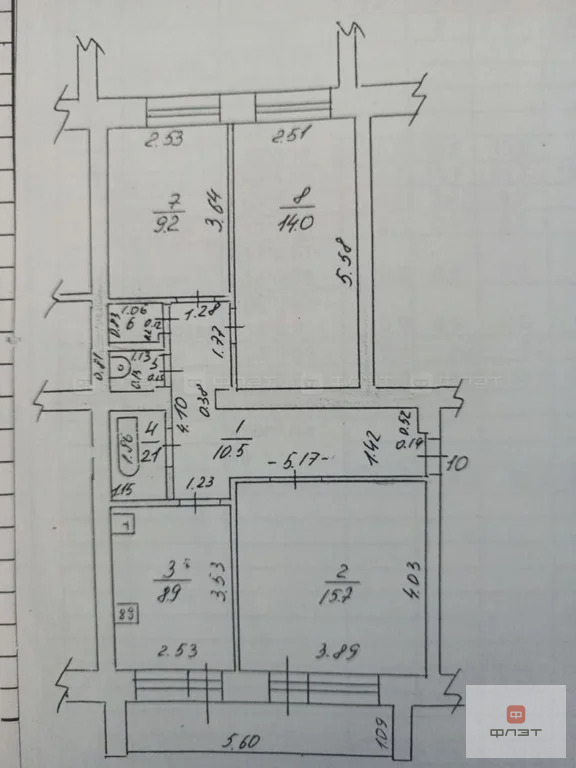 2.53
2.51
7
9.2
3.64
8
14.0
5.58
1.06
6
0.83
1.28
1.77
0.81
1.13
5
4.10
0.38
4
2.1
1.86
1.15
1
10.5
- 5.17 -
1.42
0.52
0.19
10
1.23
3
8.9
3.53
2.53
2
15.7
4.03
3.89
5.60
1.09
ФЛЭТ